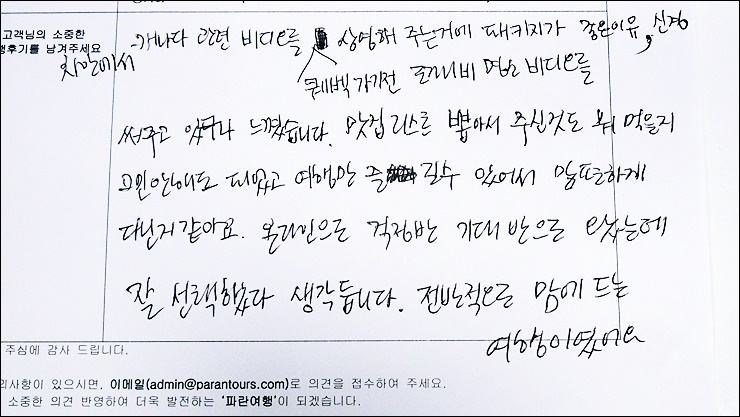 고객님의 소중한
행후기를 남겨주세요
차안에서 -캐나다 관련 비디오를 상영해 주는거에 패키지가 좋은이유, 신경
퀘벡 가기전 도깨비 명소 비디오를
써주고 있구나 느꼈습니다. 맛집 리스트 뽑아서 주신것도 뭐 먹을지
고민 안해도 되었고 여행만 즐길수 있어서 알뜰하게
다닌거 같아요. 온라인으로 걱정반 기대 반으로 왔는데
잘 선택했다 생각듭니다. 전반적으로 맘에 드는
여행이었어요
주심에 감사 드립니다.
의사항이 있으시면, 이메일(admin@parantours.com)로 의견을 접수하여 주세요.
소중한 의견 반영하여 더욱 발전하는 '파란여행'이 되겠습니다.